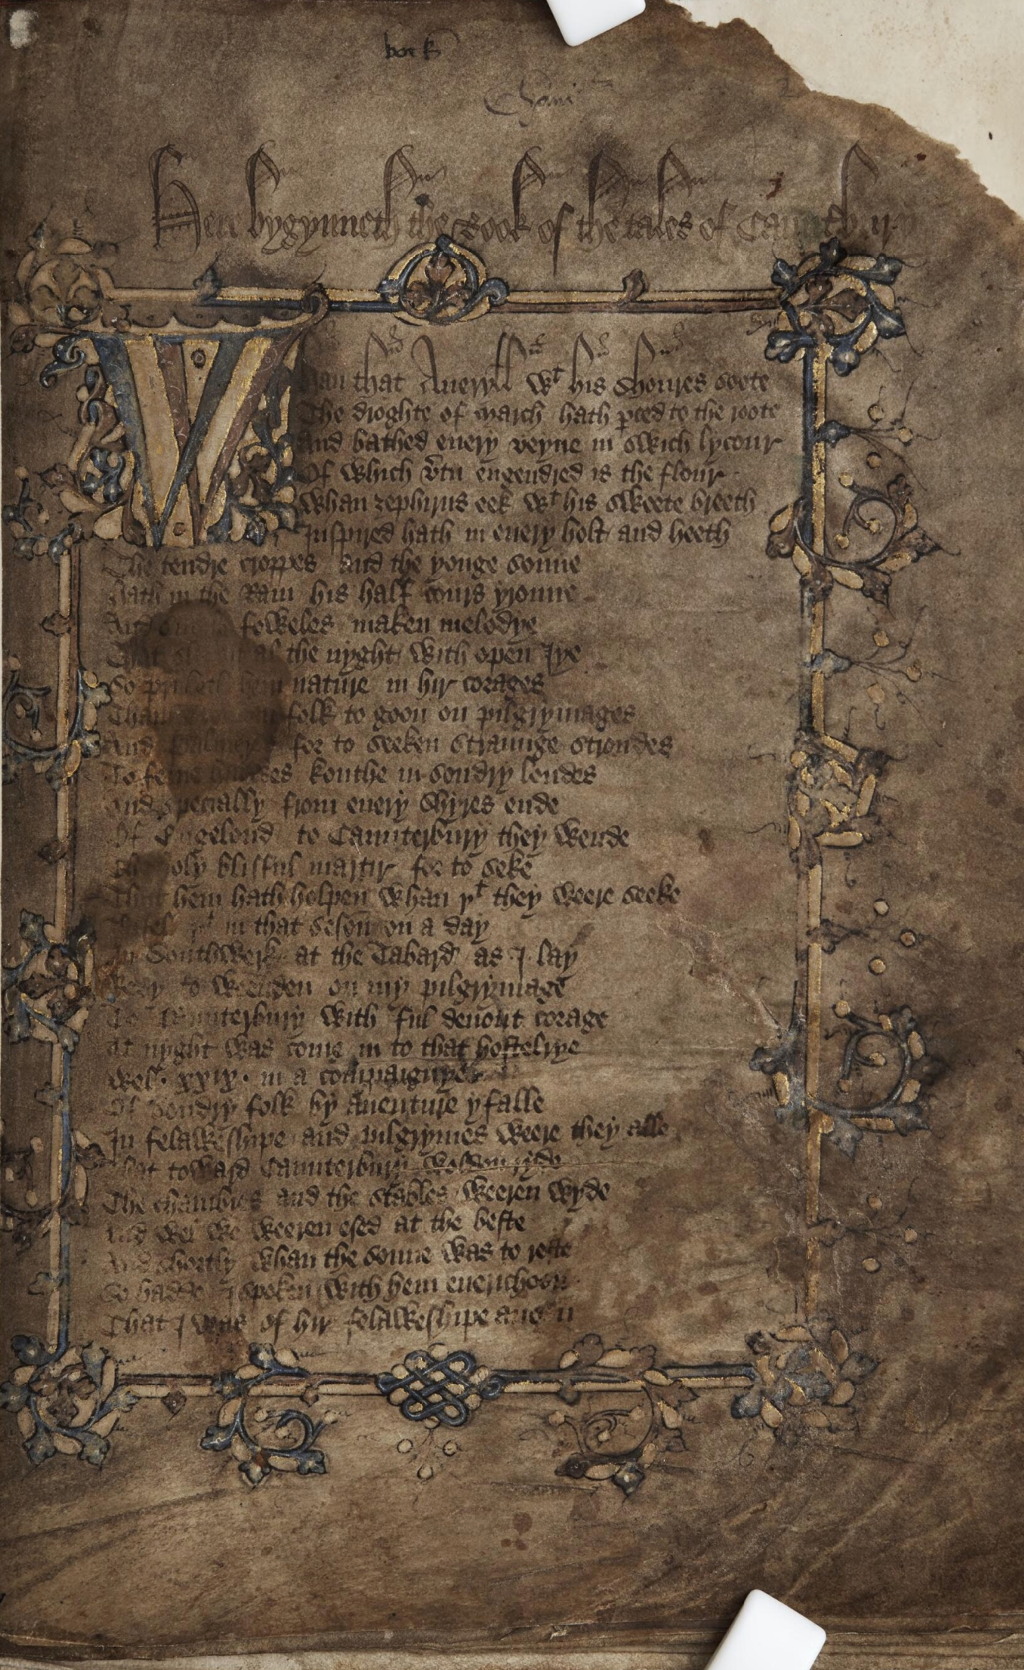 Here bygynneth the Book of the tales of Caunt̄b
Whan that Aueryll wt his shoures soote
The droghte of march hath ꝑced to the roote
And bathed euery veyne in swich lycour
Of which v̄tu engendred is the flour
Whan zephirus eek wt his sweete breeth
Inspired hath in euery holt and heeth
The tendre croppes and the yonge sonne
Hath in the Ram his half cours yronne
And foweles maken melodye
al the nyght with open Iye
So hem nature in hir corages
folk to goon on pilgrymages
And for to seeken straunge strondes
To ferne kouthe in sondry londes
And specially from euery shyres ende
Of Engelond to Caunterbury they wende
The holy blisful martir for to seke
That hem hath holpen whan yt they weere seeke
in that seson on a day
In Southwerk at the Tabard as I lay
Redy to weenden on my pilgrymage
To Caunterbury with ful deuout corage
At nyght was come in to that hostelrye
Wel .xxix. in a compaignye
Of sondry folk by auenture yfalle
In felaweshipe and pilgrymes weere they alle
That toward Caunterbury wolden ryde
The chambres and the stables weeren wyde
And wel we weeren esed at the beste
And shortly whan the sonne was to reste
So hadde I spoken with hem euerichoon
That I was of hir felaweshipe